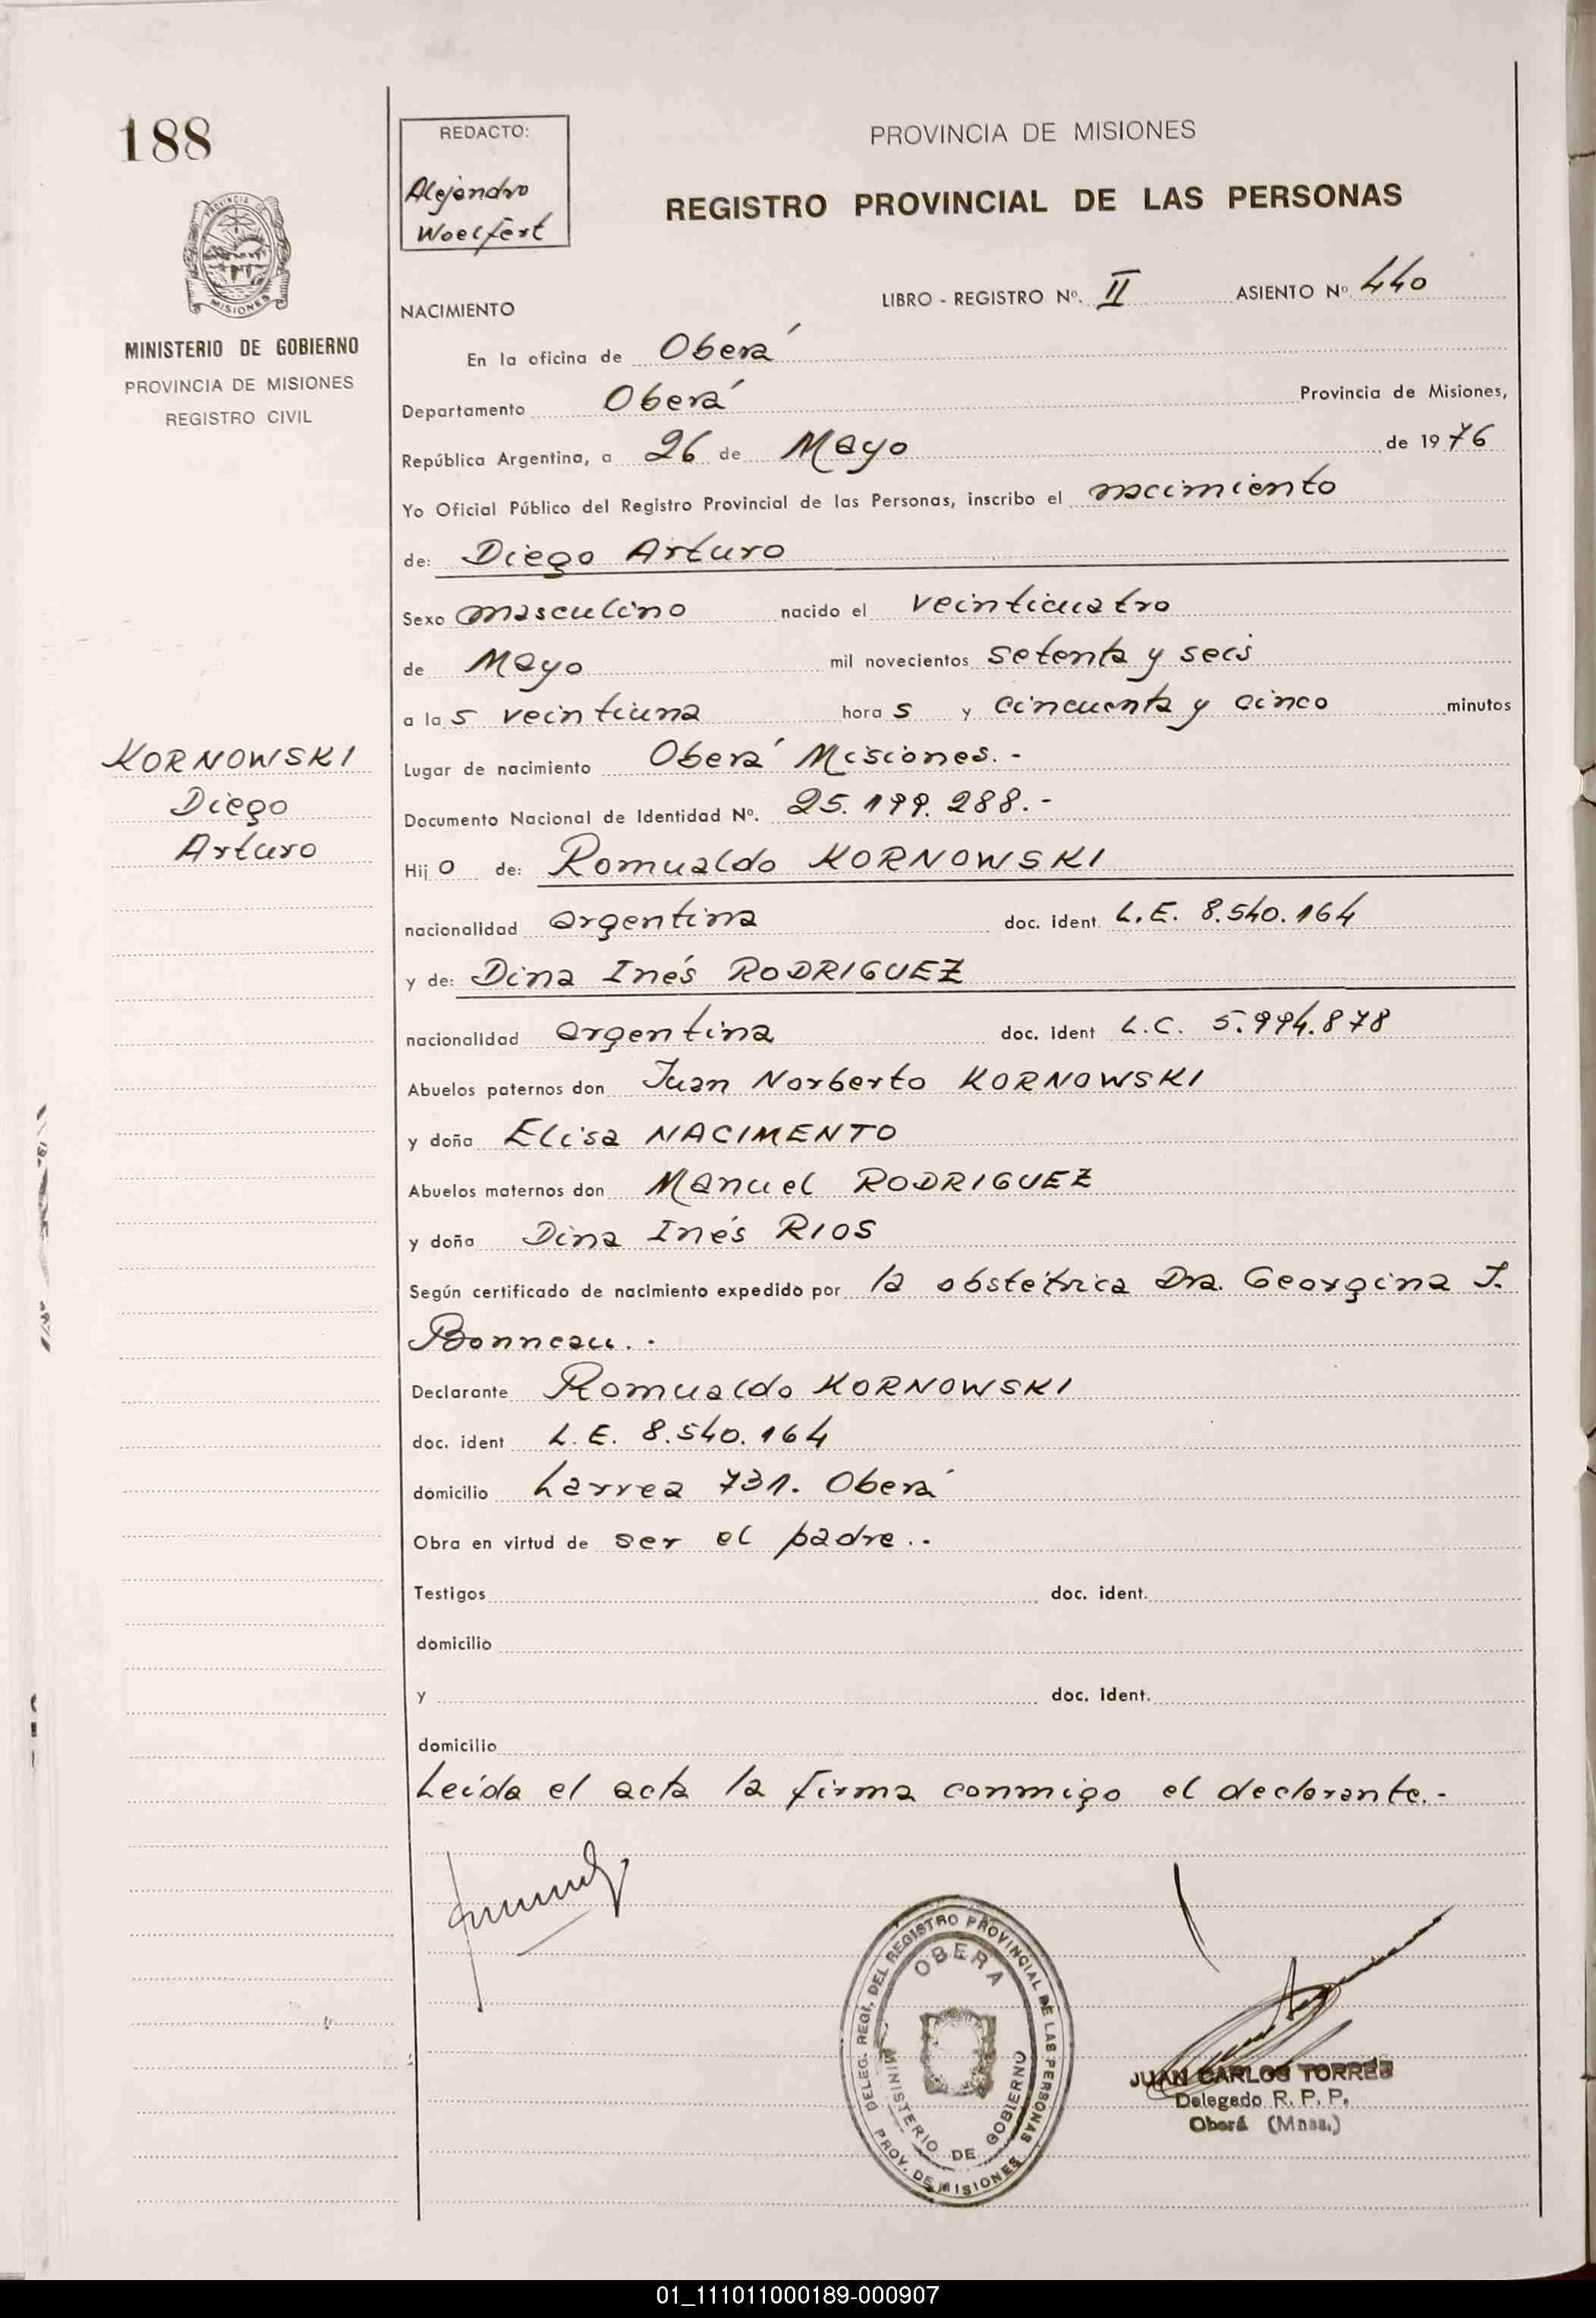 188
PROVINCIA DE
MISIONES
MINISTERIO DE GOBIERNO
PROVINCIA DE MISIONES
REGISTRO CIVIL
KORNOWSKI
Diego
Arturo
REDACTO:
Alejandro
Woelfert
PROVINCIA DE MISIONES
REGISTRO PROVINCIAL DE LAS PERSONAS
LIBRO - REGISTRO Nº. II ASIENTO Nº 440
NACIMIENTO
En la oficina de Oberá
Departamento Oberá Provincia de Misiones,
República Argentina, a 26 de Mayo de 1976
Yo Oficial Público del Registro Provincial de las Personas, inscribo el nacimiento
de: Diego Arturo
Sexo masculino nacido el veinticuatro
de Mayo mil novecientos setenta y seis
a la s veintiuna hora s y cincuenta y cinco minutos
Lugar de nacimiento Oberá Misiones.-
Documento Nacional de Identidad Nº. 25.199.288.-
Hij o de: Romualdo KORNOWSKI
nacionalidad argentina doc. ident. L.E. 8.540.164
y de: Dina Inés RODRIGUEZ
nacionalidad argentina doc. ident L.C. 5.994.878
Abuelos paternos don Juan Norberto KORNOWSKI
y doña Elisa NACIMENTO
Abuelos maternos don Manuel RODRIGUEZ
y doña Dina Inés RIOS
Según certificado de nacimiento expedido por la obstétrica Dra. Georgina J.
Bonneau.-
Declarante Romualdo KORNOWSKI
doc. ident L.E. 8.540.164
domicilio Larrea 731. Oberá
Obra en virtud de ser el padre..
Testigos doc. ident.
domicilio
y doc. ident.
domicilio
Leída el acta la firma conmigo el declarante.-
DELEG. REGI. DEL REGISTRO PROVINCIAL DE LAS PERSONAS
OBERA
MINISTERIO DE GOBIERNO
PROV. DE MISIONES
JUAN CARLOS TORRES
Delegado R. P. P.
Oberá (Mnes.)
01_111011000189-000907